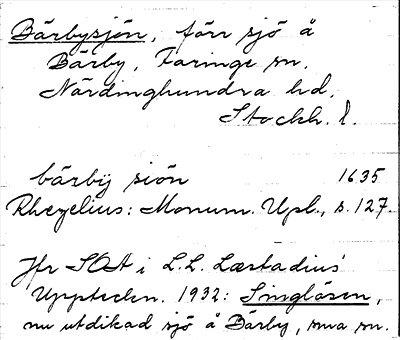 Bärbysjön, förr sjö å
Bärby, Faringe sn,
Närdinghundra hd,
Stockh. l.
bärbÿ siön 1635
Rhezelius: Monum. Upl., s. 127.
Jfr SOA i L. L. Læstadius'
Uppteckn. 1932: Singlösen,
nu utdikad sjö å Bärby, sma sn.